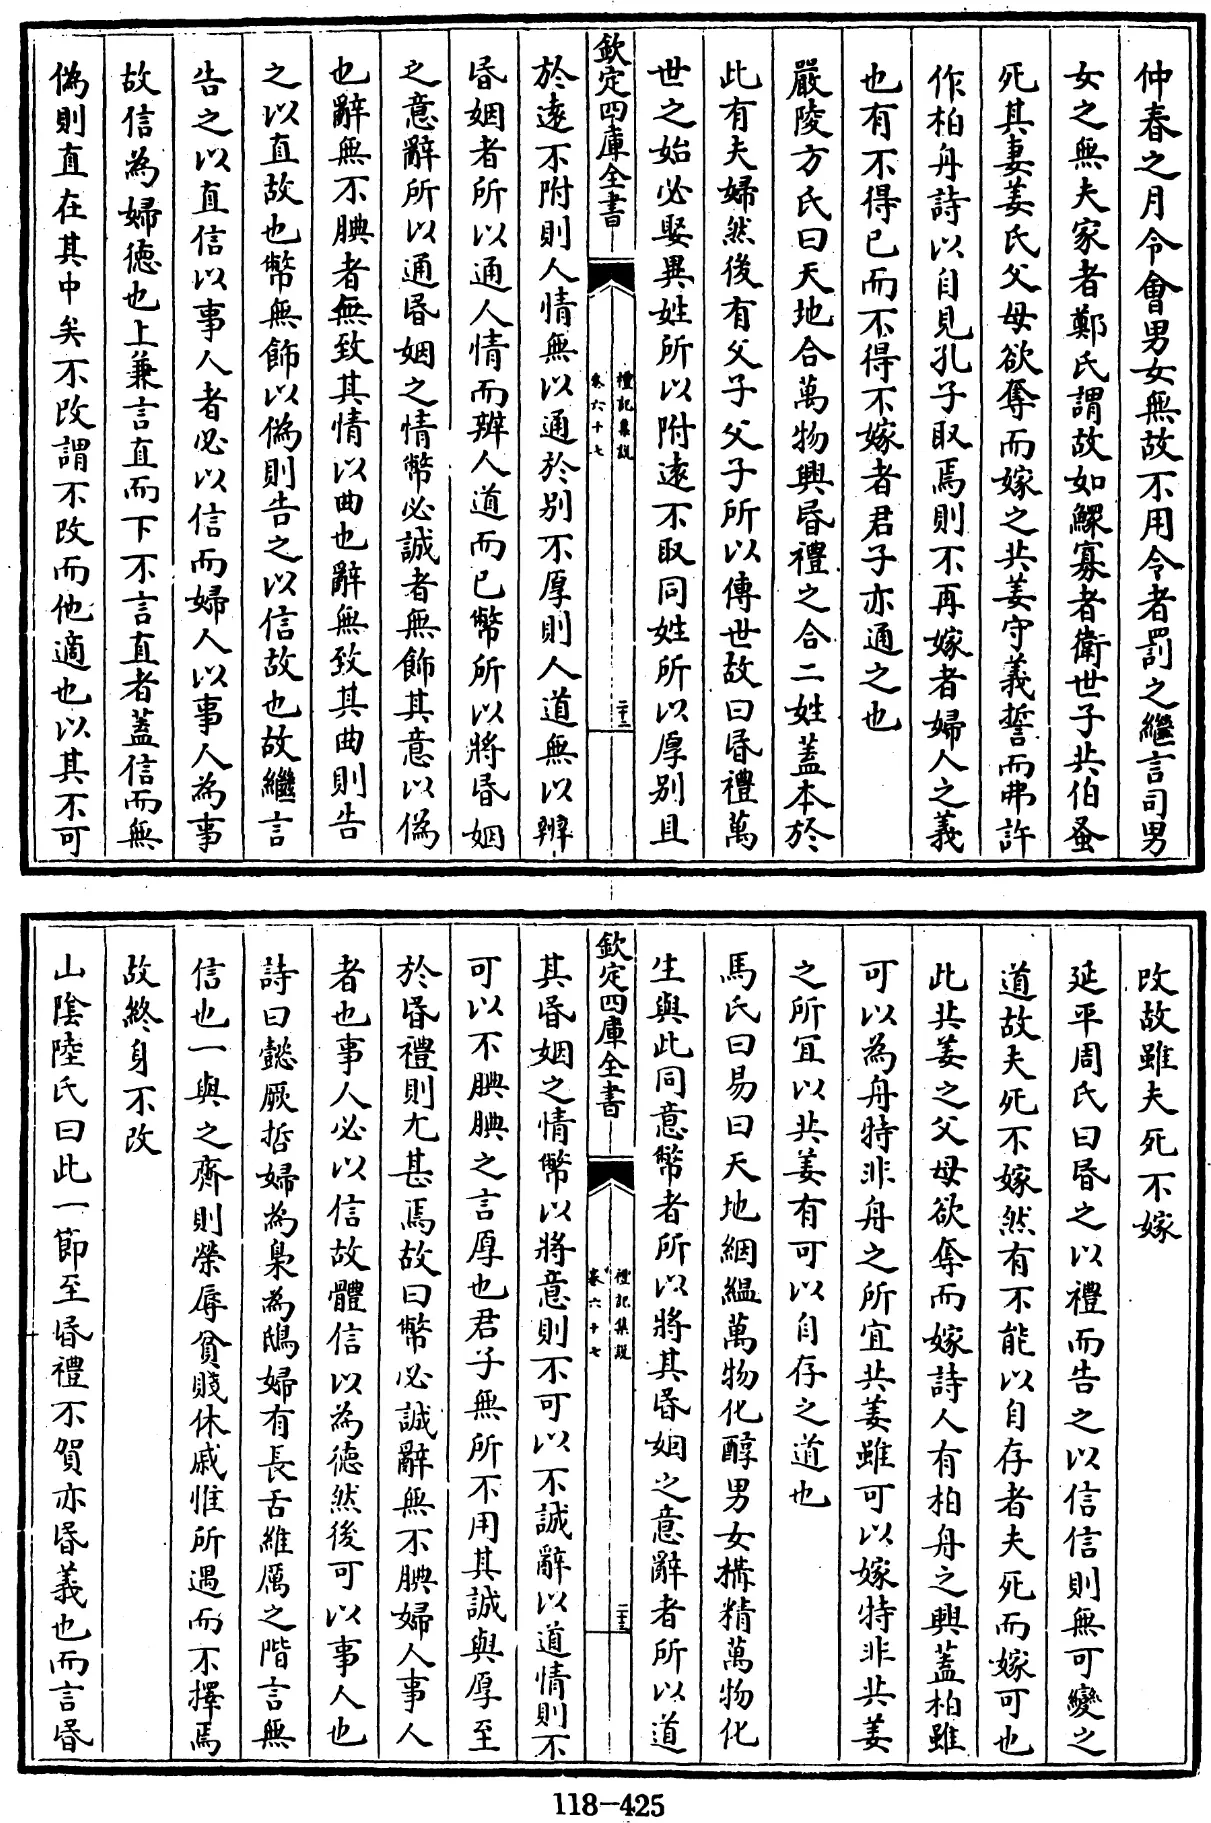 仲春之月令會男女無故不用令者罰之繼言司男
女之無夫家者鄭氏謂故如鰥寡者衛世子共伯蚤
死其妻姜氏父母欲奪而嫁之共姜守義誓而弗許
作柏舟詩以自見孔子取焉則不再嫁者婦人之義
也有不得已而不得不嫁者君子亦通之也
嚴陵方氏曰天地合萬物興昬禮之合二姓蓋本於
此有夫婦然後有父子父子所以傳世故曰昬禮萬
世之始必娶異姓所以附遠不取同姓所以厚别且
欽定四庫全書
禮記集說
卷六十七
二十二
於遠不附則人情無以通於别不厚則人道無以辨
昬姻者所以通人情而辨人道而已幣所以將昬姻
之意辭所以通昬姻之情幣必誠者無飾其意以偽
也辭無不腆者無致其情以曲也辭無致其曲則告
之以直故也幣無飾以偽則告之以信故也故繼言
告之以直信以事人者必以信而婦人以事人為事
故信為婦德也上兼言直而下不言直者蓋信而無
偽則直在其中矣不改謂不改而他適也以其不可
改故雖夫死不嫁
延平周氏曰昬之以禮而告之以信信則無可變之
道故夫死不嫁然有不能以自存者夫死而嫁可也
此共姜之父母欲奪而嫁詩人有柏舟之興蓋柏雖
可以為舟特非舟之所宜共姜雖可以嫁特非共姜
之所宜以共姜有可以自存之道也
馬氏曰易曰天地絪緼萬物化醇男女構精萬物化
生與此同意幣者所以將其昬姻之意辭者所以道
欽定四庫全書
禮記集說
卷六十七
二十三
其昬姻之情幣以將意則不可以不誠辭以道情則不
可以不腆腆之言厚也君子無所不用其誠與厚至
於昬禮則尤甚焉故曰幣必誠辭無不腆婦人事人
者也事人必以信故體信以為德然後可以事人也
詩曰懿厥哲婦為梟為鴟婦有長舌維厲之階言無
信也一與之齊則榮辱貧賤休戚惟所遇而不擇焉
故終身不改
山陰陸氏曰此一節至昬禮不賀亦昬義也而言昬
118-425